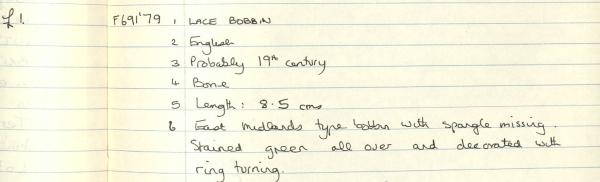 £1. F691'79 1 LACE BOBBIN
2 English
3 Probably 19th century
4 Bone
5 Length: 8.5 cms
6 East midlands type bobbin with spangle missing.
Stained green all over and decorated with
ring turning.